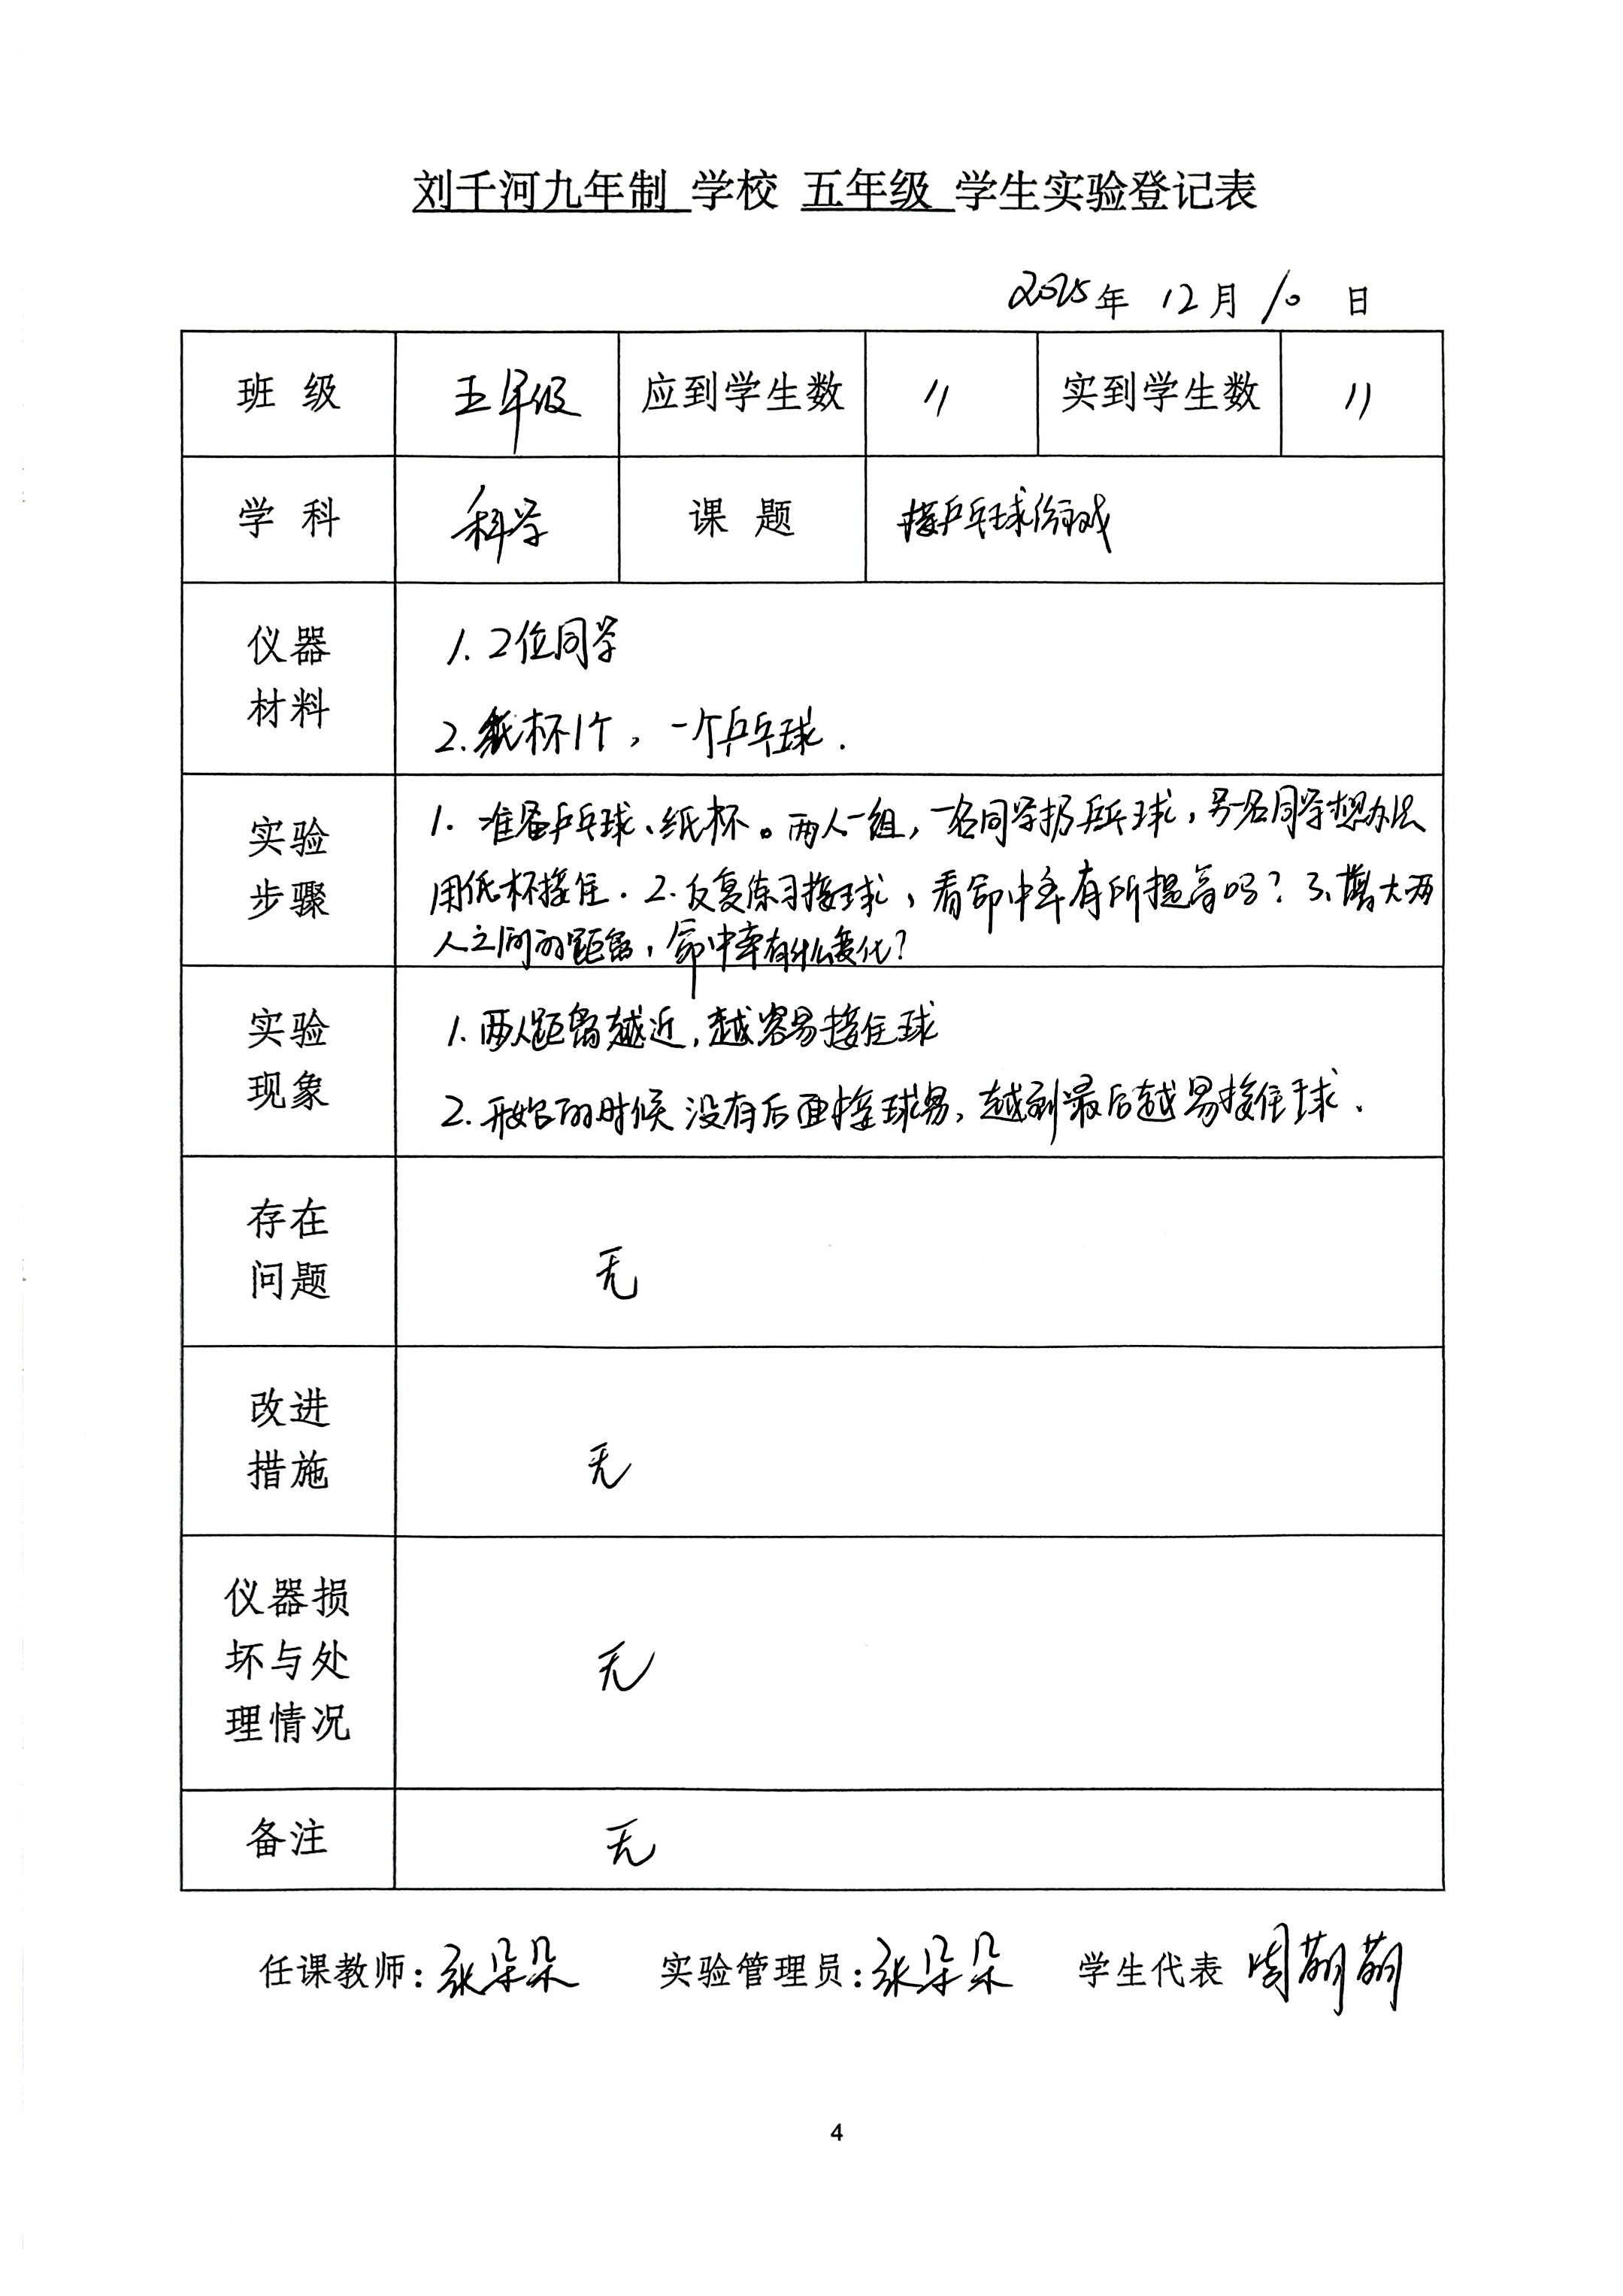 刘千河九年制 学校 五年级 学生实验登记表
2025年 12月 10 日
班 级 五年级 应到学生数 11 实到学生数 11
学 科 科学 课 题 接乒乓球游戏
仪器
材料
1. 2位同学
2. 纸杯1个，一个乒乓球.
实验
步骤
1. 准备乒乓球、纸杯。两人一组，一名同学扔乒乓球，另一名同学想办法
用纸杯接住. 2. 反复练习接球，看命中率有所提高吗？3、增大两
人之间的距离，命中率有什么变化？
实验
现象
1. 两人距离越近，越容易接住球
2. 开始的时候没有后面接球易，越到最后越易接住球.
存在
问题
无
改进
措施
无
仪器损
坏与处
理情况
无
备注 无
任课教师：张朵朵 实验管理员：张朵朵 学生代表 周萌萌
4